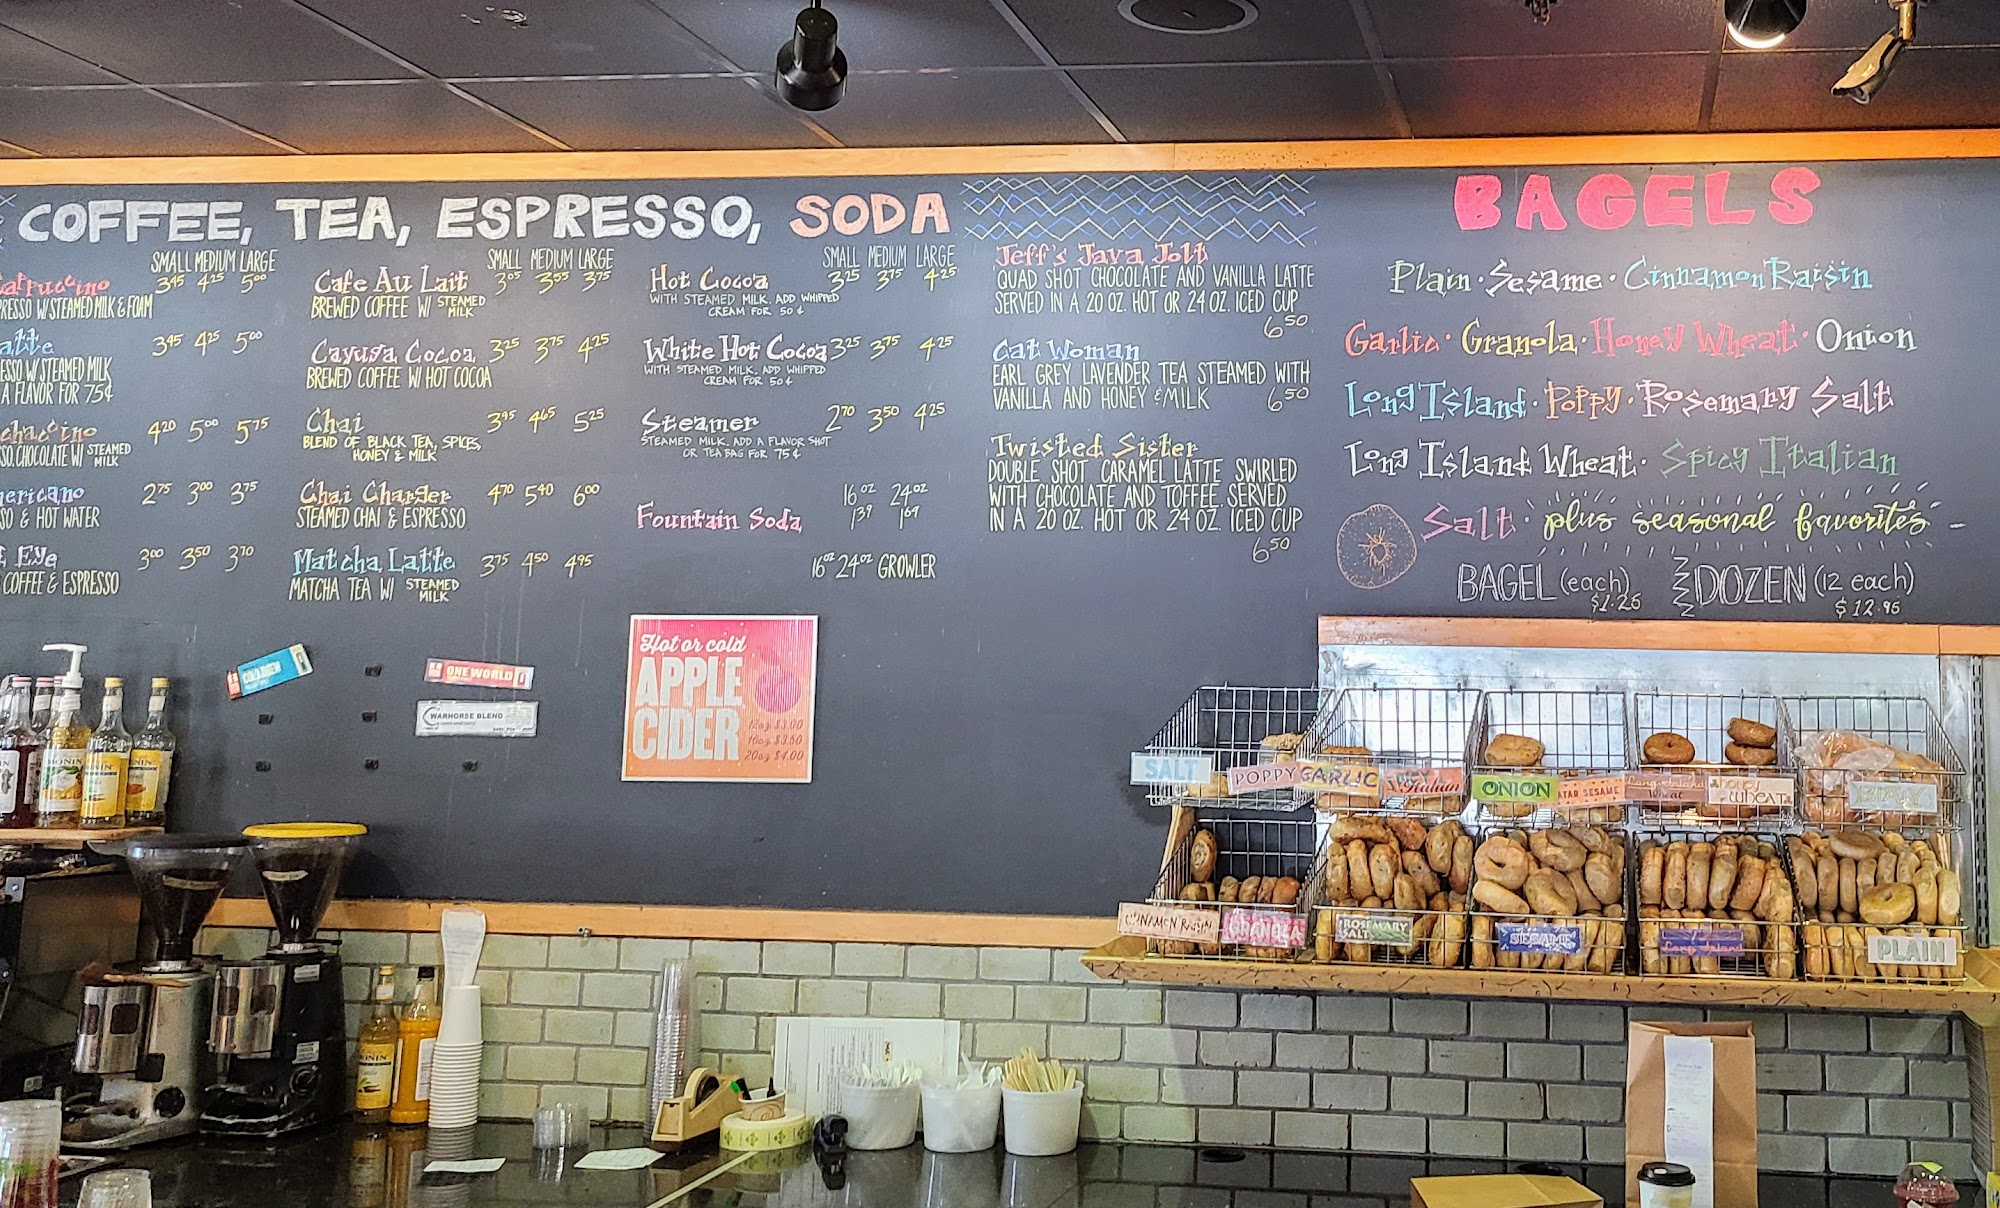 COFFEE, TEA, ESPRESSO, SODA
SMALL MEDIUM LARGE
Cappuccino 3.45 4.25 5.00
PRESSO W/ STEAMED MILK & FOAM
atte 3.45 4.25 5.00
ESSO W/ STEAMED MILK
A FLAVOR FOR 75¢
chaccino 4.20 5.00 5.75
SSO, CHOCOLATE W/ STEAMED MILK
mericano 2.75 3.00 3.75
SSO & HOT WATER
Eye 3.00 3.50 3.70
COFFEE & ESPRESSO
SMALL MEDIUM LARGE
Cafe Au Lait 3.05 3.55 3.75
BREWED COFFEE W/ STEAMED MILK
Cayuga Cocoa 3.25 3.75 4.25
BREWED COFFEE W/ HOT COCOA
Chai 3.95 4.65 5.25
BLEND OF BLACK TEA, SPICES,
HONEY & MILK
Chai Charger 4.70 5.40 6.00
STEAMED CHAI & ESPRESSO
Matcha Latte 3.75 4.50 4.95
MATCHA TEA W/ STEAMED MILK
SMALL MEDIUM LARGE
Hot Cocoa 3.25 3.75 4.25
WITH STEAMED MILK. ADD WHIPPED
CREAM FOR 50¢
White Hot Cocoa 3.25 3.75 4.25
WITH STEAMED MILK. ADD WHIPPED
CREAM FOR 50¢
Steamer 2.70 3.50 4.25
STEAMED MILK. ADD A FLAVOR SHOT
OR TEA BAG FOR 75¢
16 OZ 24 OZ
Fountain Soda 1.39 1.69
16 OZ 24 OZ GROWLER
Jeff's Java Jolt
QUAD SHOT CHOCOLATE AND VANILLA LATTE
SERVED IN A 20 OZ. HOT OR 24 OZ. ICED CUP
6.50
Cat Woman
EARL GREY LAVENDER TEA STEAMED WITH
VANILLA AND HONEY & MILK 6.50
Twisted Sister
DOUBLE SHOT CARAMEL LATTE SWIRLED
WITH CHOCOLATE AND TOFFEE. SERVED
IN A 20 OZ. HOT OR 24 OZ. ICED CUP
6.50
BAGELS
Plain · Sesame · Cinnamon Raisin
Garlic · Granola · Honey Wheat · Onion
Long Island · Poppy · Rosemary Salt
Long Island Wheat · Spicy Italian
Salt · plus seasonal favorites
BAGEL (each) DOZEN (12 each)
$1.25 $12.95
ONE WORLD
WARHORSE BLEND
Hot or cold
APPLE
CIDER
12oz $3.00
16oz $3.50
20oz $4.00
SALT
POPPY
GARLIC
Italian
ONION
SESAME
Long Island Wheat
Honey Wheat
CINNAMON RAISIN
GRANOLA
ROSEMARY SALT
SESAME
Long Island
PLAIN
MONIN
MONIN